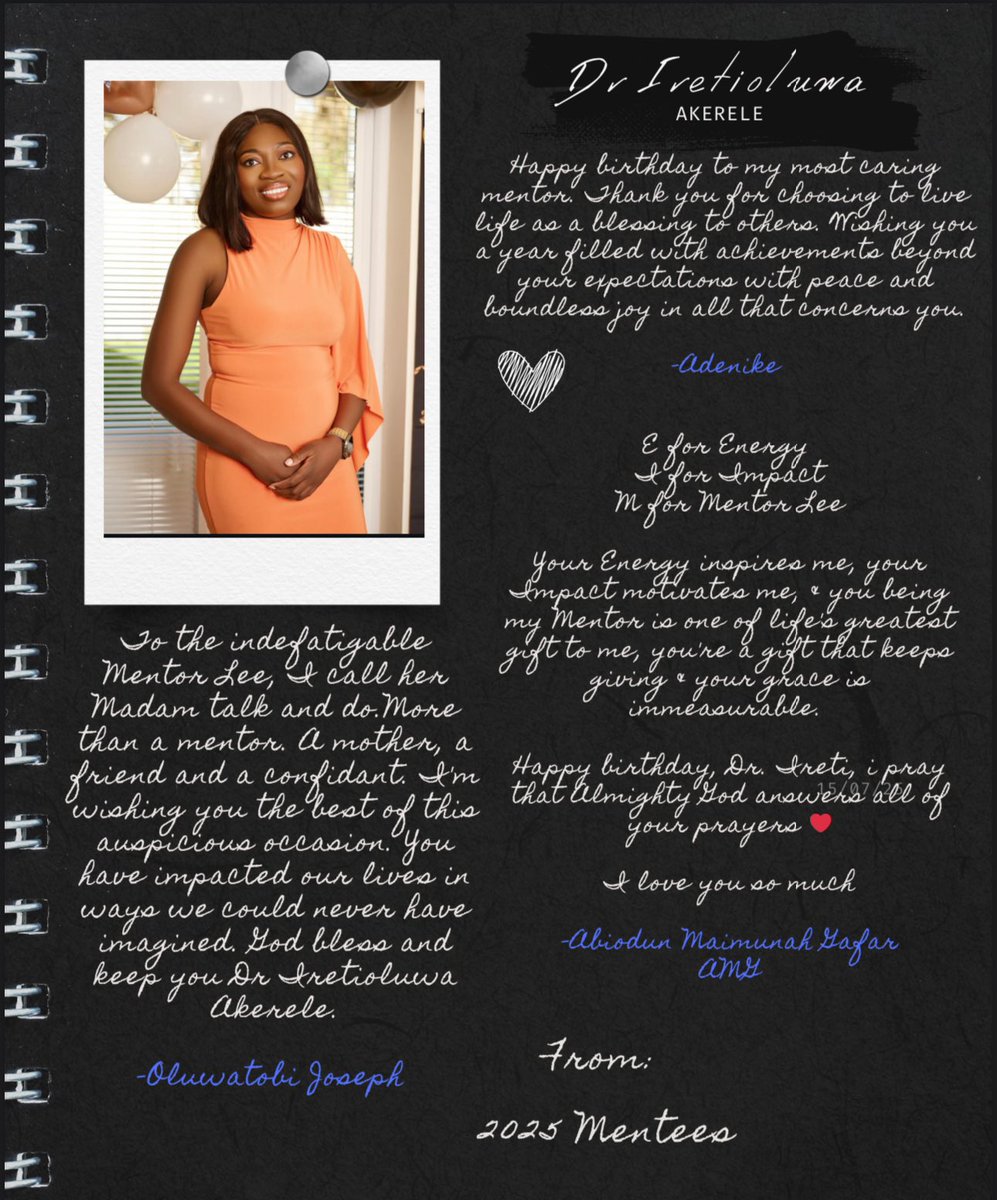 Dr Iretioluwa
AKERELE
Happy birthday to my most caring
mentor. Thank you for choosing to live
life as a blessing to others. Wishing you
a year filled with achievements beyond
your expectations with peace and
boundless joy in all that concerns you.
-Adenike
E for Energy
I for Impact
M for Mentor Lee
Your Energy inspires me, your
Impact motivates me, & you being
my Mentor is one of life's greatest
gift to me, you're a gift that keeps
giving & your grace is
immeasurable.
Happy birthday, Dr. Ireti, i pray
that Almighty God answers all of
your prayers ❤️
I love you so much
-Abiodun Maimunah Gafar
AMG
To the indefatigable
Mentor Lee, I call her
Madam talk and do.More
than a mentor. A mother, a
friend and a confidant. I'm
wishing you the best of this
auspicious occasion. You
have impacted our lives in
ways we could never have
imagined. God bless and
keep you Dr Iretioluwa
Akerele.
-Oluwatobi Joseph
From:
2025 Mentees